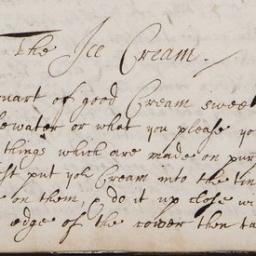 The Ice Cream.
quart of good Cream sweet
water or what you please yo
things which are made on pur
st put yoe Cream into the tin
e on them, & do it up close wi
edge of the cower then ta